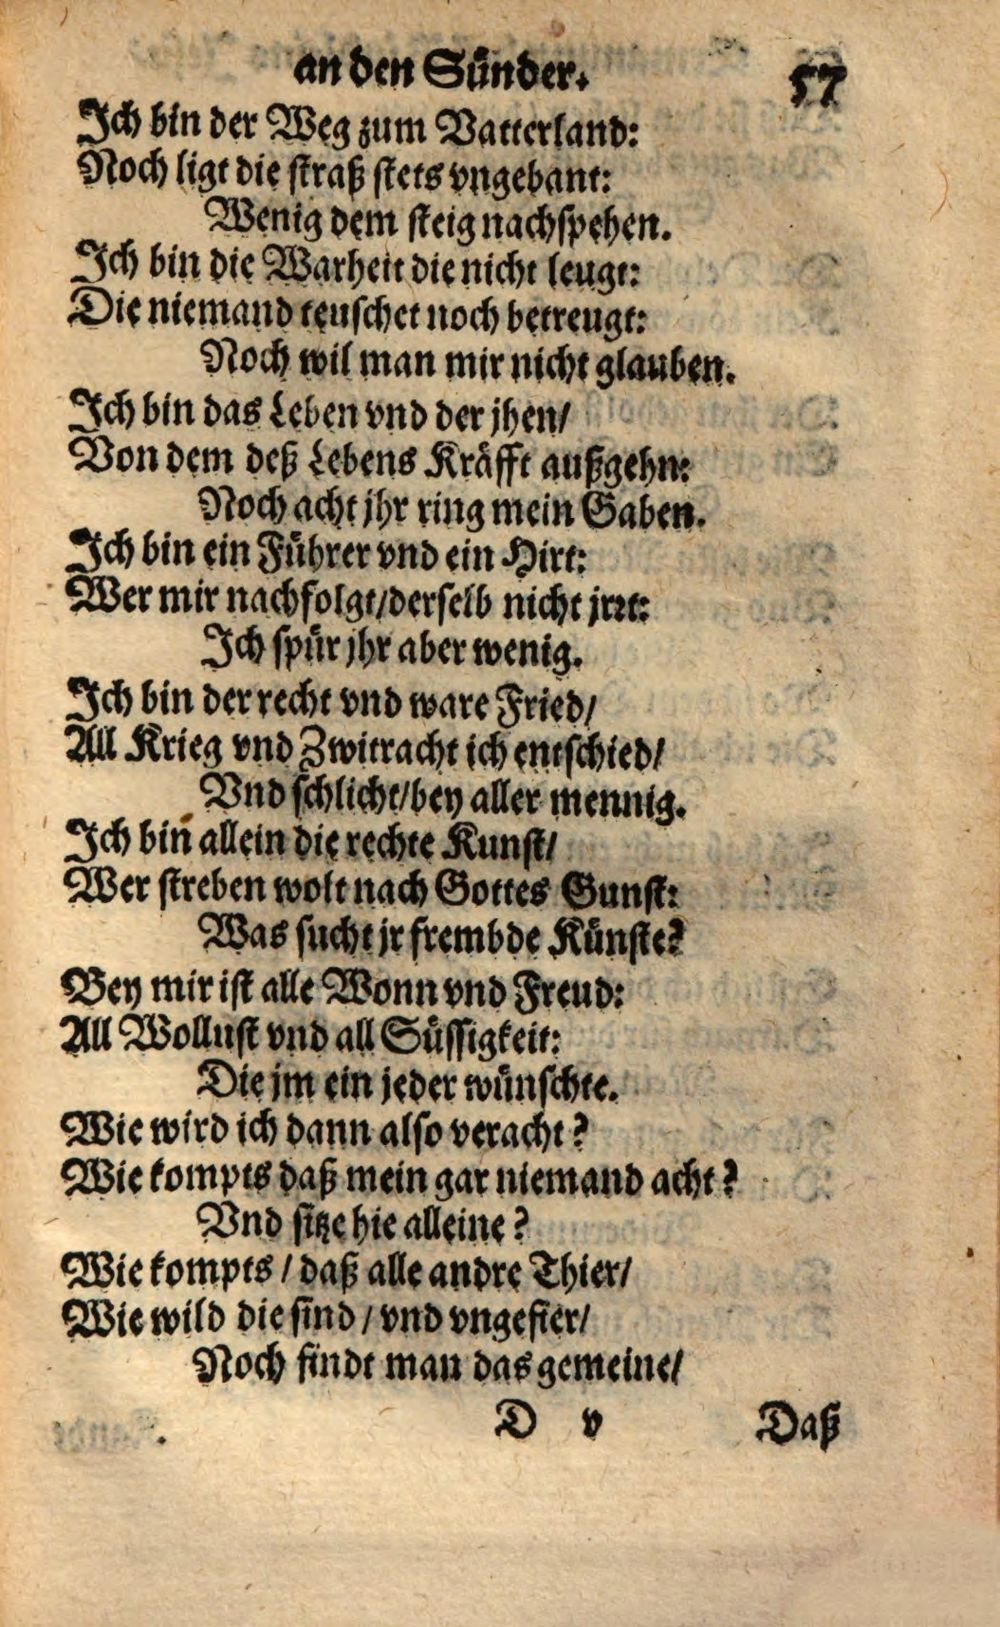 an den Sünder. 57
Ich bin der Weg zum Vatterland:
Noch ligt die straß stets vngebant:
Wenig dem steig nachspehen.
Ich bin die Warheit die nicht leugt:
Die niemand teuschet noch betreugt:
Noch wil man mir nicht glauben.
Ich bin das Leben vnd der jhen/
Von dem deß Lebens Kräfft außgehn:
Noch acht jhr ring mein Gaben.
Ich bin ein Führer vnd ein Hirt:
Wer mir nachfolgt/derselb nicht jrꝛt:
Ich spür jhr aber wenig.
Ich bin der recht vnd ware Fried/
All Krieg vnd Zwitracht ich entschied/
Vnd schlicht/bey aller mennig.
Ich bin allein die rechte Kunst/
Wer streben wolt nach Gottes Gunst:
Was sucht jr frembde Künste?
Bey mir ist alle Wonn vnd Freud:
All Wollust vnd all Süssigkeit:
Die jm ein jeder wünschte.
Wie wird ich dann also veracht?
Wie kompts daß mein gar niemand acht?
Vnd sitze hie alleine?
Wie kompts / daß alle andre Thier/
Wie wild die sind / vnd vngefier/
Noch findt man das gemeine/
D v Daß